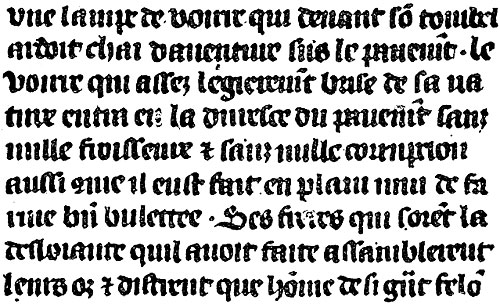 vne lampe de voirre qui deuant sõ tombel
ardoit chai dauenture sus le pauemẽt . le
voirre qui assez legieremẽt brise de sa na
ture entra en la duresce du pauemẽt sanz
nulle froisseure ⁊ sanz nulle corrupcion
aussi que il eust fait en plain mui de fa
rine biñ buletee . Ses freres qui sorẽt la
desloiaute quil auoit faite assamblerent
leurs oz ⁊ distrent que hõme de si gñt felõ